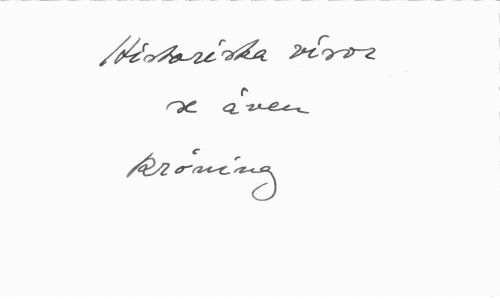 Historiska visor
se även
kröning